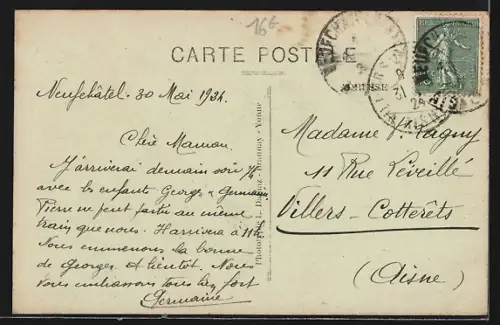 16 €
CARTE POSTALE
Neufchâtel. 30 Mai 1924.
Chère Maman.
J'arriverai demain soir 7h
avec les enfants Georges & Germaine
Pierre ne peut partir au même
train que nous. Il arrivera à 11h
Nous emmenons la bonne
de Georges. A bientôt. Nous
vous embrassons tous bien fort
Germaine
Madame Lagny
11 Rue Léveillé
Villers-Cotterêts
(Aisne)